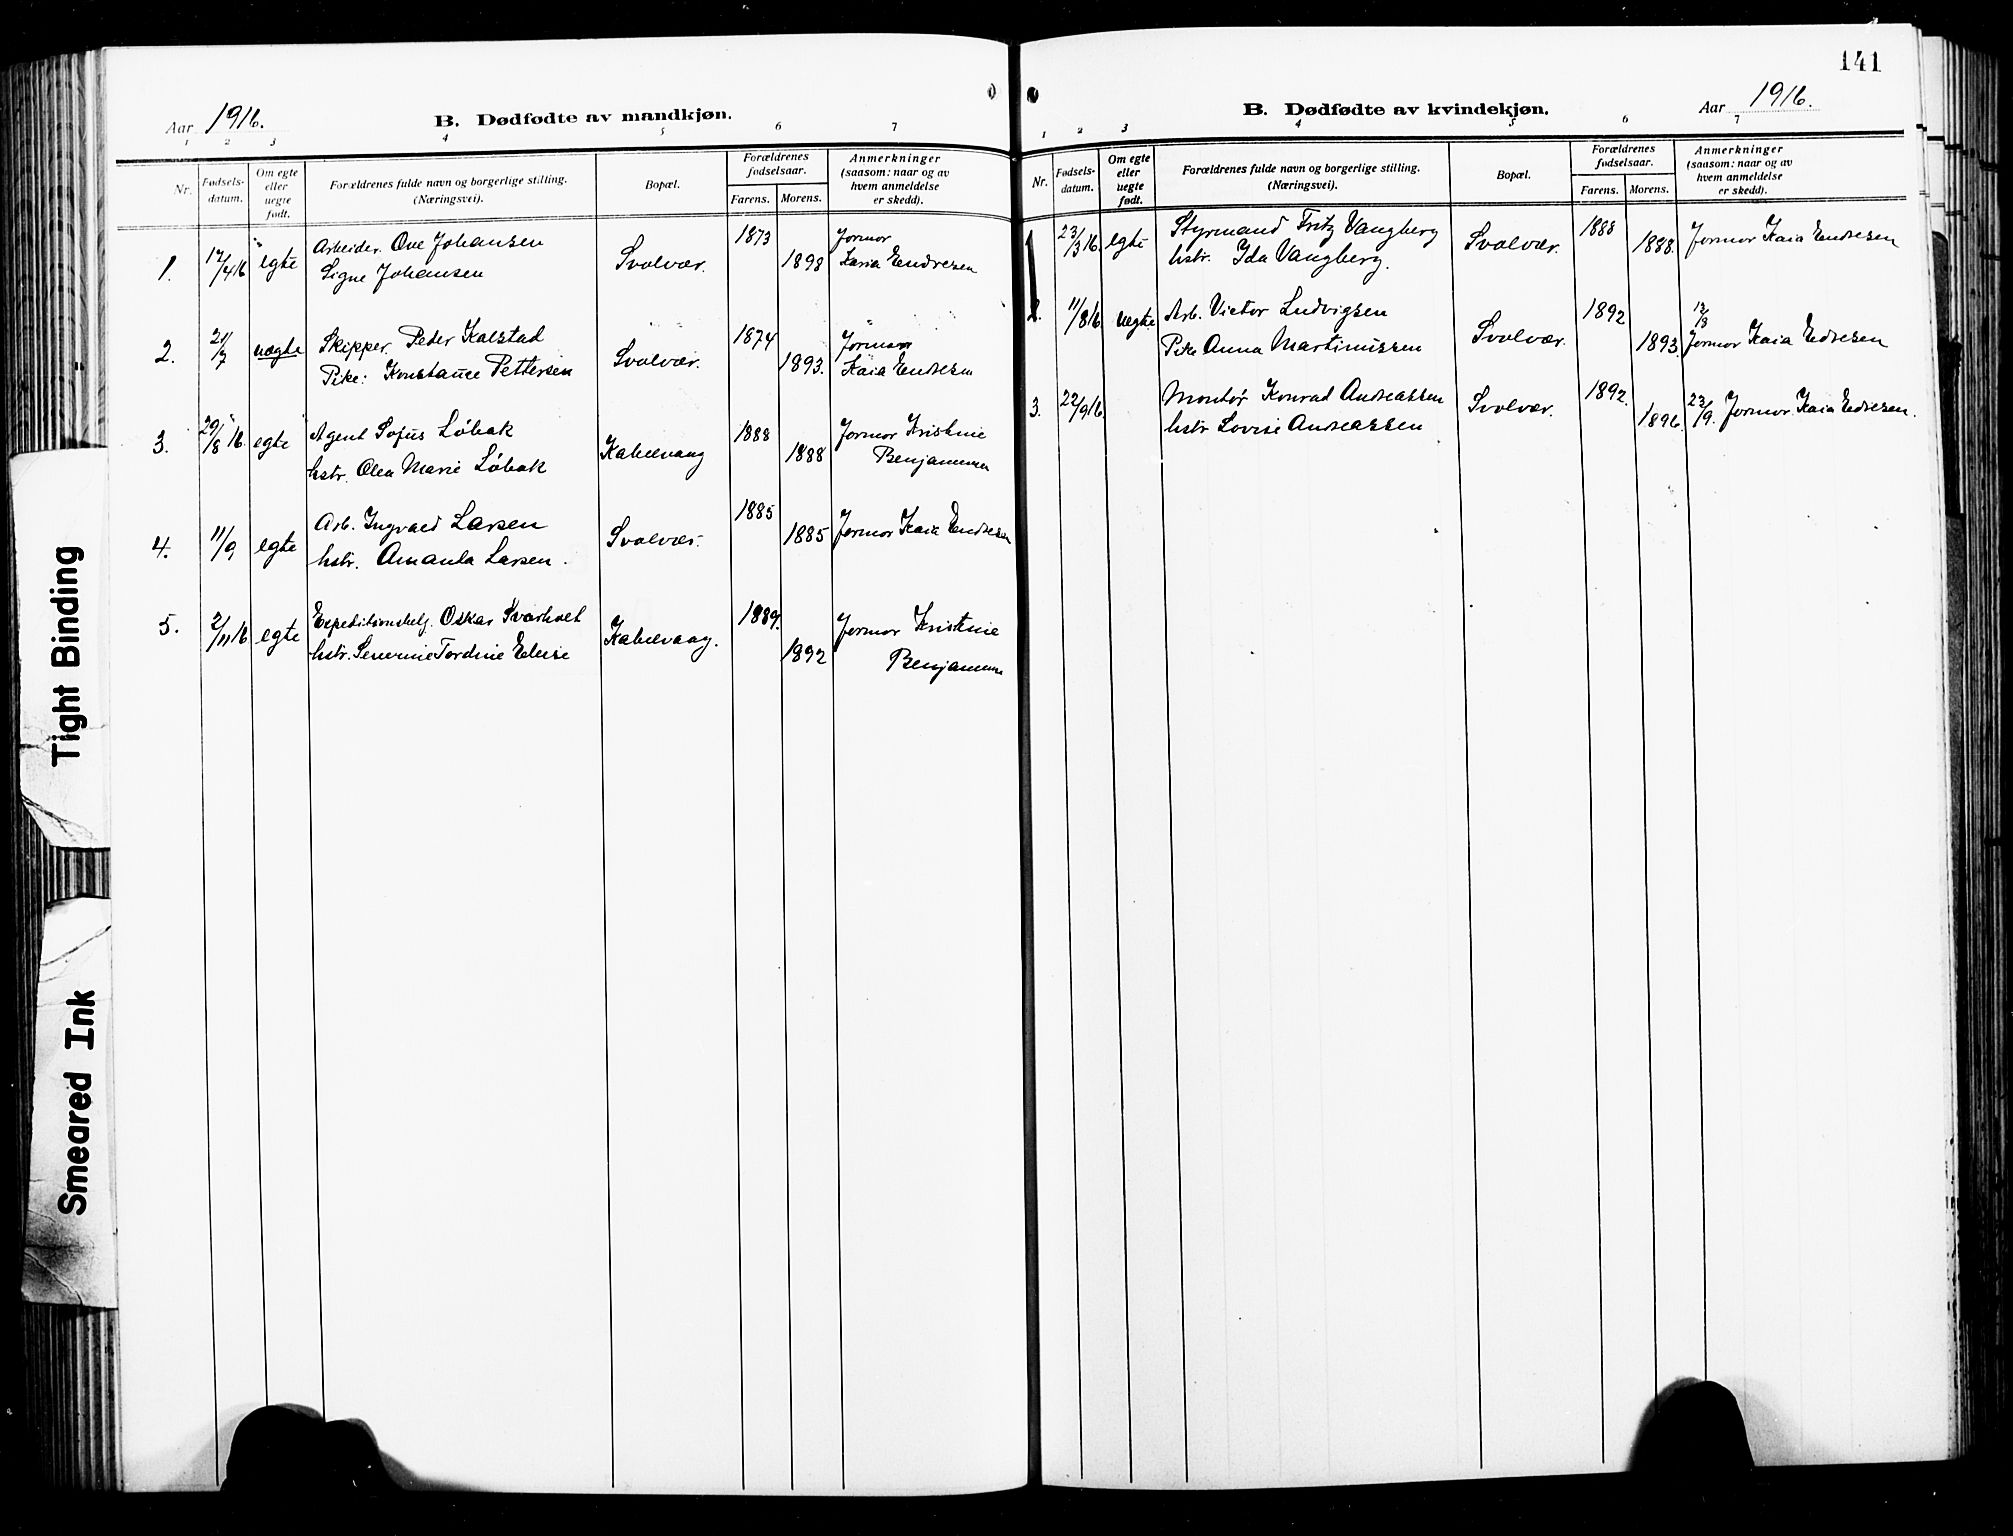 Aar 1916.
B. Dødfødte av mandkjøn.
1 2 3 4 5 6 7
Nr.
Fødsels-
datum.
Om egte
eller
uegte
født.
Forældrenes fulde navn og borgerlige stilling.
(Næringsvei).
Bopæl.
Forældrenes
fødselsaar.
Farens. Morens.
Anmerkninger
(saasom: naar og av
hvem anmeldelse
er skedd).
1. 17/4 16 egte Arbeider. Ove Johansen Svolvær. 1873 Jormor
Signe Johansen 1898 Kaia Endresen
2. 21/7 uegte Skipper. Peder Kalstad Svolvær. 1874 Jormor
Pike: Konstance Pettersen 1893. Kaia Endresen
3. 29/8 16 egte Agent Sofus Løbak Kabelvaag 1888 Jormor Kristine
hstr. Olea Marie Løbak 1888 Benjaminsen
4. 11/9 egte Arb. Ingvald Larsen Svolvær. 1885 Jormor Kaia Endresen
hstr. Amanda Larsen. 1885
5. 2/11 16 egte Expeditionsbetj. Oskar Svarholt Kabelvaag. 1889. Jormor Kristine
hstr. Severine Tordine Elise 1892 Benjaminsen
141
B. Dødfødte av kvindekjøn.
Aar 1916.
1 2 3 4 5 6 7
Nr.
Fødsels-
datum.
Om egte
eller
uegte
født.
Forældrenes fulde navn og borgerlige stilling.
(Næringsvei).
Bopæl.
Forældrenes
fødselsaar.
Farens. Morens.
Anmerkninger
(saasom: naar og av
hvem anmeldelse
er skedd).
1 23/3 16. egte Styrmand Fritz Vangberg Svolvær. 1888 Jormor Kaia Endresen
hstr. Ida Vangberg. 1888.
2. 11/8 16 uegte Arb. Victor Ludvigsen Svolvær. 1892 12/8
Pike Anna Martinussen 1893. Jormor Kaia Edresen
3. 22/9 16. Montør Konrad Andreassen Svolvær. 1892. 23/9. Jormor Kaia Edresen.
hstr Lovise Andreassen 1896.
Tight Binding
Smeared Ink